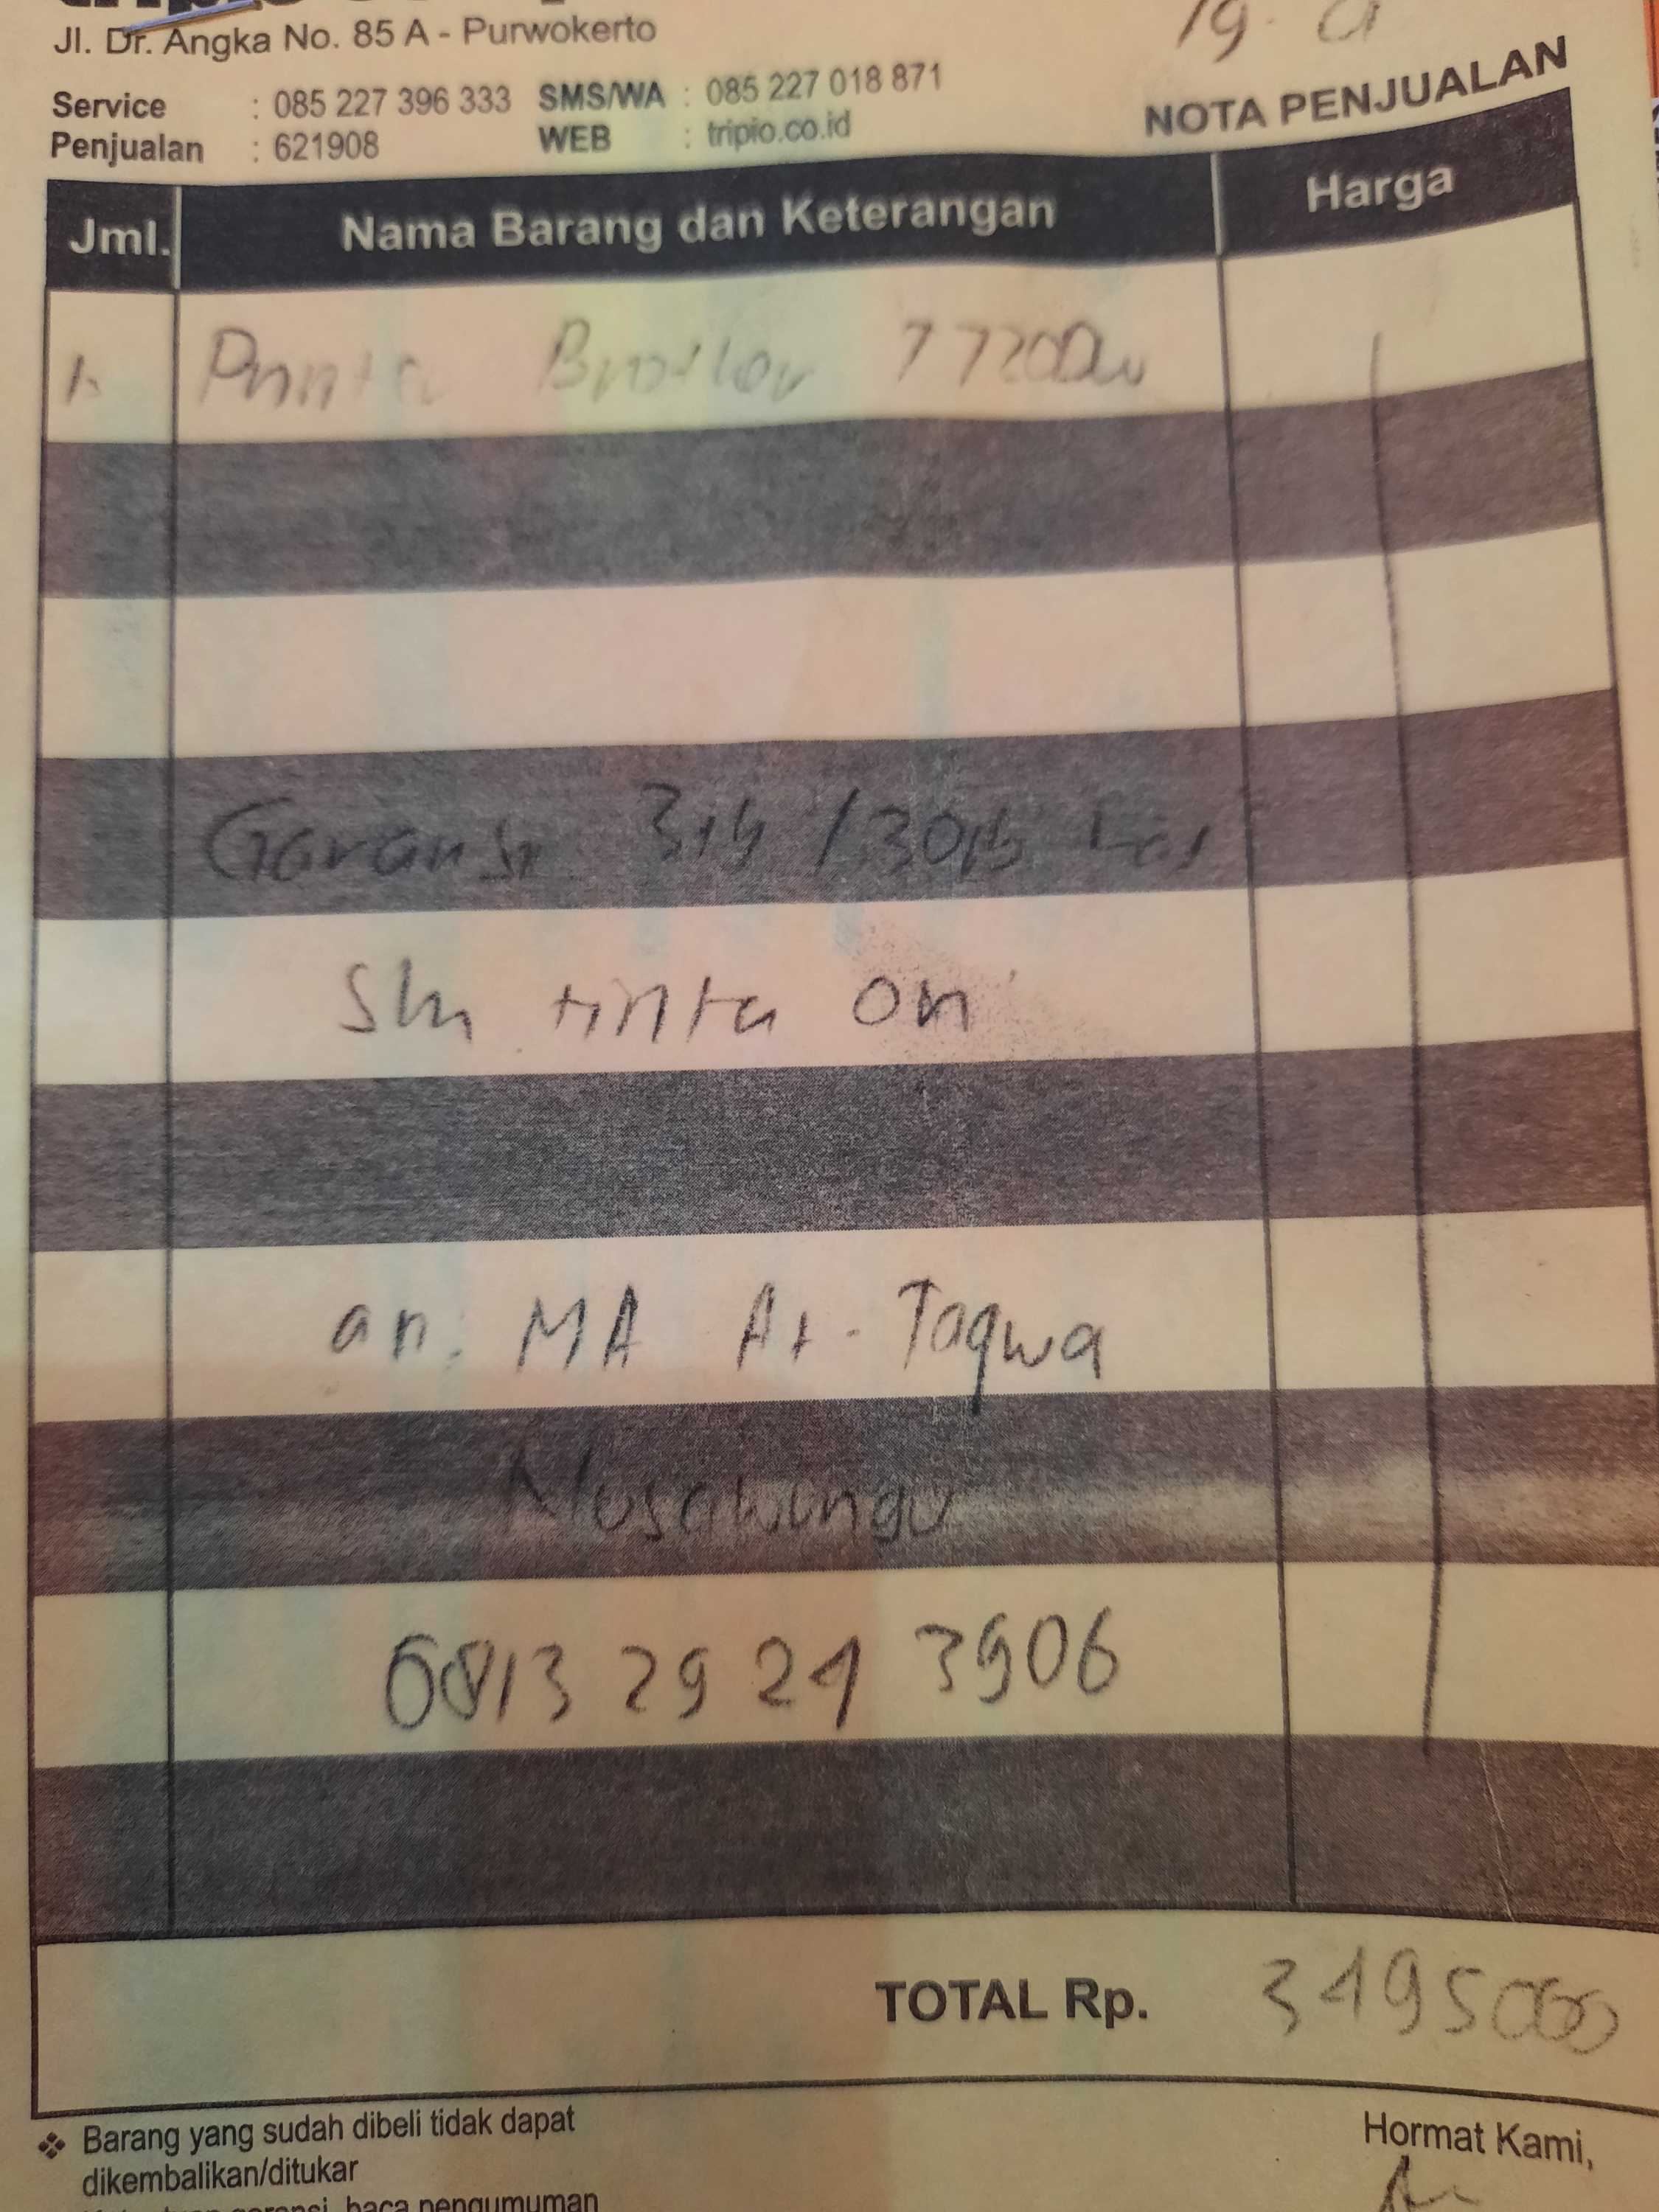 Jl. Dr. Angka No. 85 A - Purwokerto
Service : 085 227 396 333 SMS/WA : 085 227 018 871
Penjualan : 621908 WEB : tripio.co.id
NOTA PENJUALAN
Jml. Nama Barang dan Keterangan Harga
1. Printer Brother T720DW
Garansi 3th / 30rb
tinta ori
an. MA At-Taqwa
Nusawungu
0813 2924 3906
TOTAL Rp. 3495000
❖ Barang yang sudah dibeli tidak dapat
dikembalikan/ditukar
garansi, baca pengumuman
Hormat Kami,